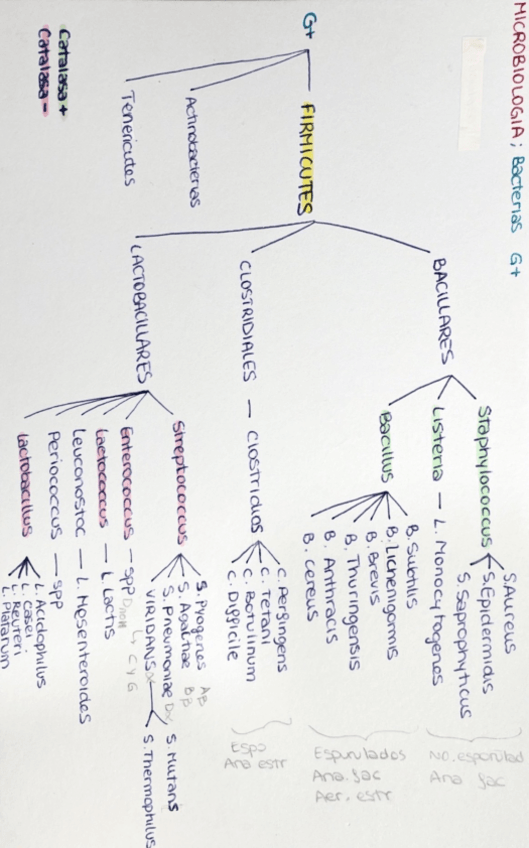 MICROBIOLOGIA; Bacterias G+
G+
FIRMICUTES
Actinobacterias
Tenericutes
Catalasa +
Catalasa -
BACILLARES
Staphylococcus
S.Aureus
S.Epidermidis
S.Saprophyticus
Listeria — L. Monocytogenes
No.esporulad
Ana fac
Bacillus
B. Subtilis
B. Lichenigormis
B. Brevis
B. Thuringensis
B. Anthracis
B. cereus
Esporulados
Ana. fac
Aer. estr
CLOSTRIDIALES — Clostridios
C. Perfingens
C. Tetani
C. Botulinum
C. Difficile
Espo
Ana estr
LACTOBACILLARES
Streptococcus
S. Pyogenes Aβ
S. Agactiae Bβ
S. Pneumoniae Dα
VIRIDANS α
S. Mutans
S. Thermophilus
Enterococcus — spp
L, C y G
Lactococcus — L. Lactis
Leuconostoc — L. Mesenteroides
Periococcus — spp
Lactobacillus
L. Acidophilus
L. Casei
L. Reuteri
L. Platarum